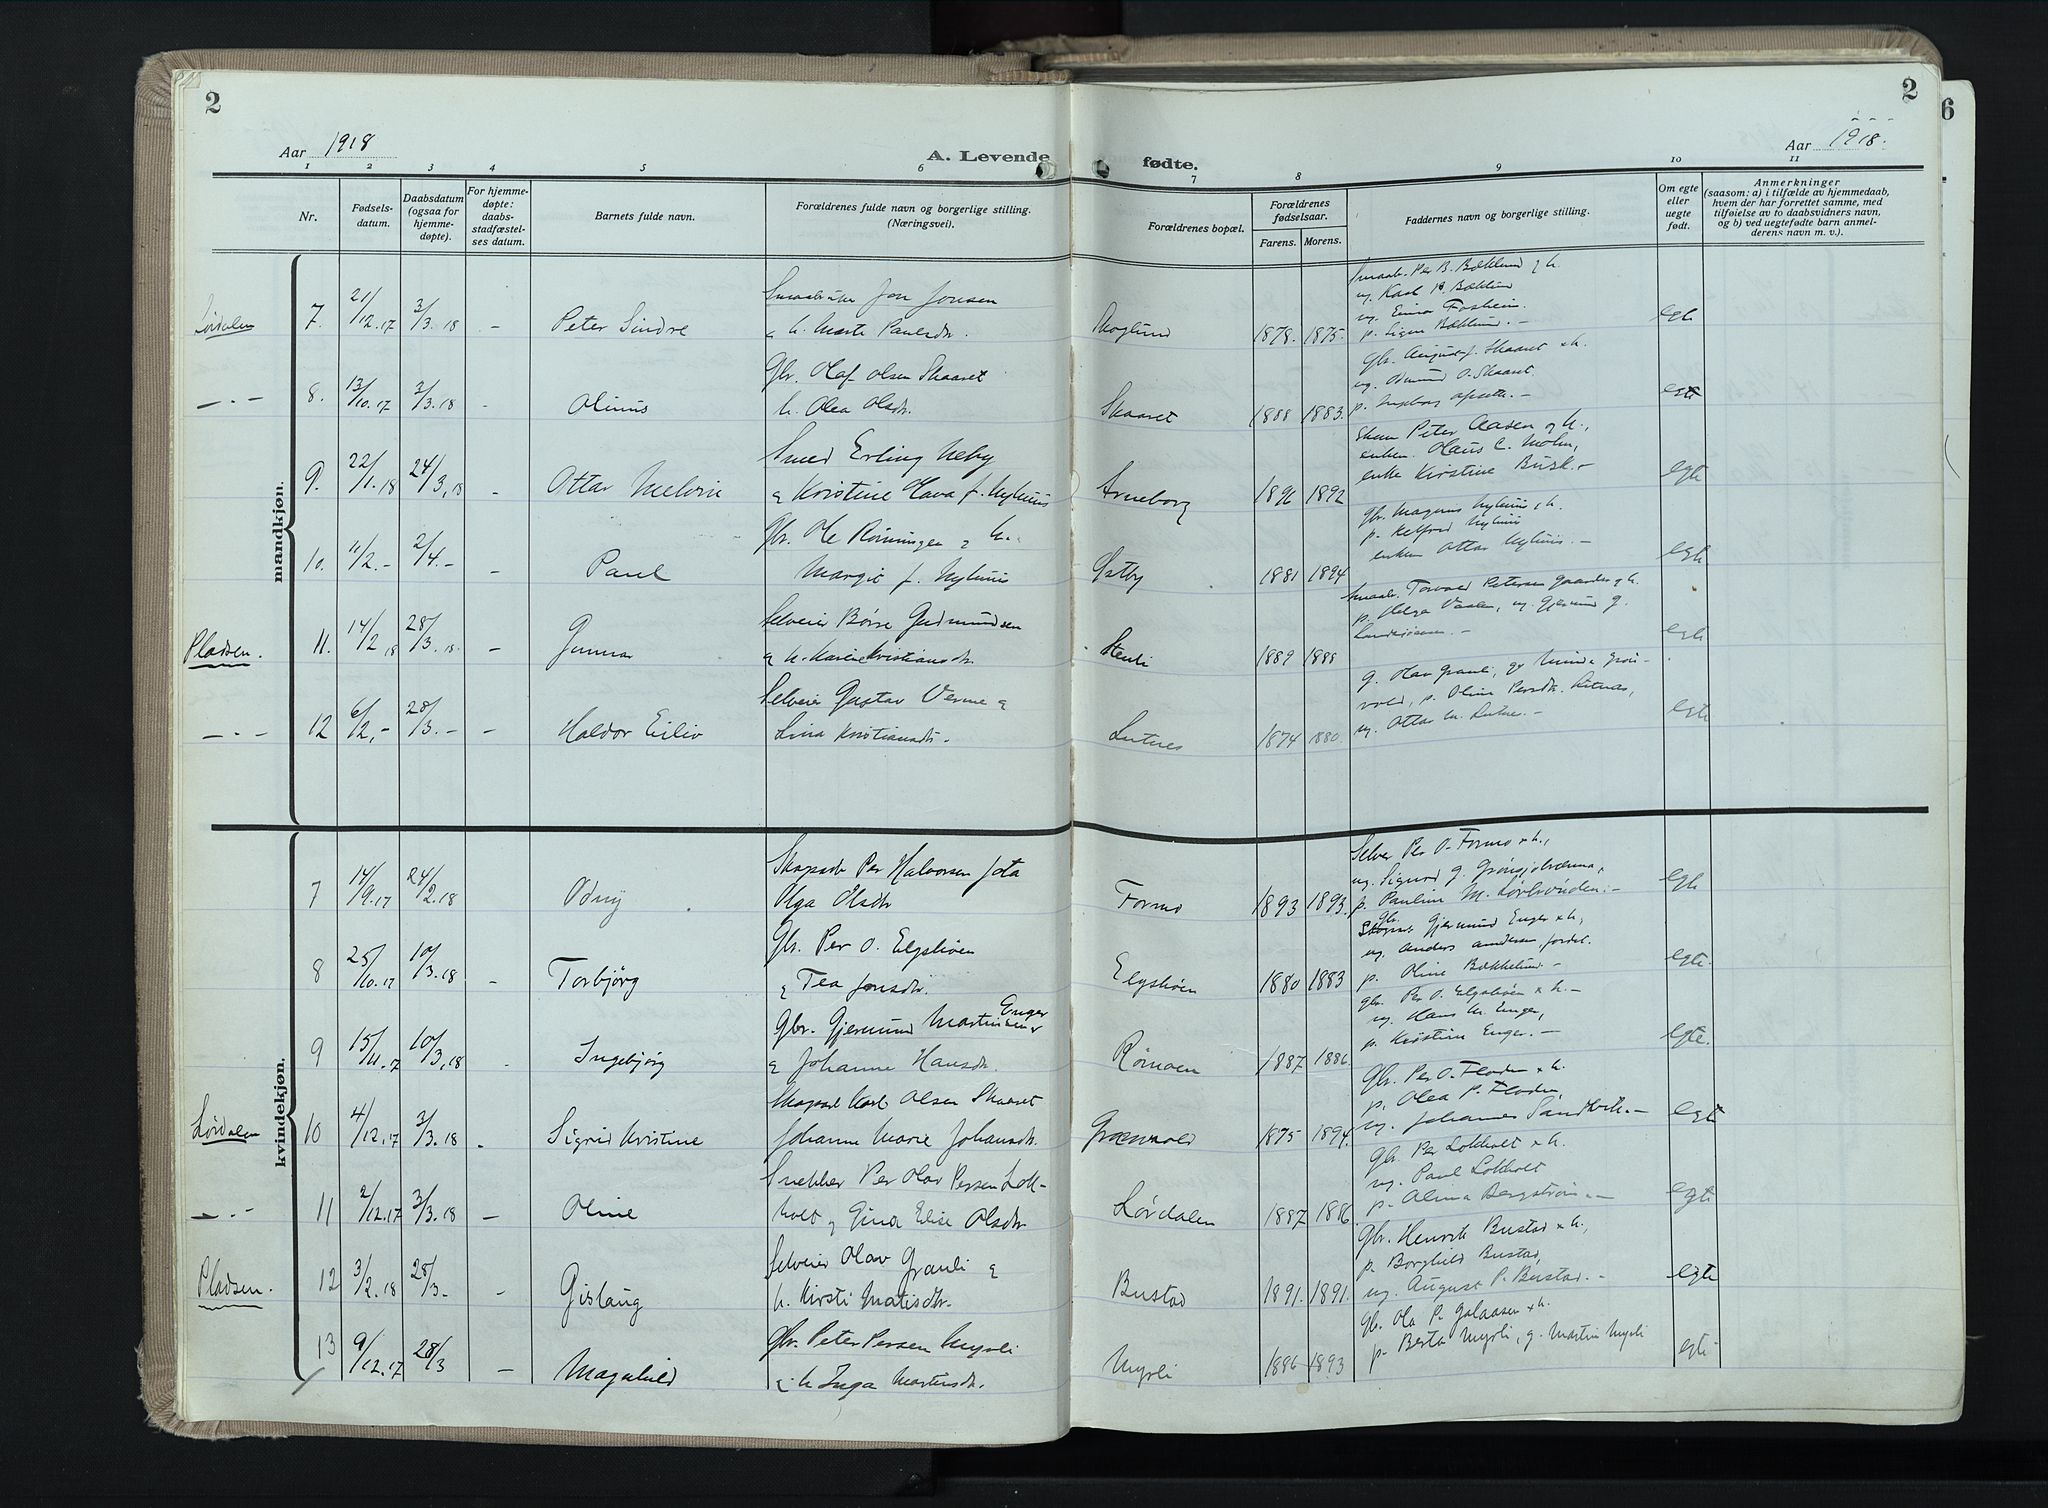 2
2
6
Aar 1918
A. Levende fødte.
Aar 1918.
1 2 3 4 5 6 7 8 9 10 11
Nr.
Fødsels-
datum.
Daabsdatum
(ogsaa for
hjemme-
døpte).
For hjemme-
døpte:
daabs-
stadfæstel-
ses datum.
Barnets fulde navn.
Forældrenes fulde navn og borgerlige stilling.
(Næringsvei).
Forældrenes bopæl.
Forældrenes
fødselsaar.
Farens. Morens.
Faddernes navn og borgerlige stilling.
Om egte
eller
uegte
født.
Anmerkninger
(saasom: a) i tilfælde av hjemmedaab,
hvem der har forrettet samme, med
tilføielse av to daabsvidners navn,
og b) ved uegtefødte barn anmel-
derens navn m. v.).
mandkjøn.
Lørdalen 7. 21/12.17 3/3.18 - Peter Sindre
Jon Jonsen
& h. Marte Paulsdtr.
Skoglund 1878. 1875.
Smaabr. Per B. Bæklund & h.
ug. Karl B. Bæklund
ug. Einar Fosheim.
p. Signe Bæklund. -
egte
- " - 8. 13/10.17 3/3.18 - Olinus
Gbr. Olaf Olsen Skaaret
h. Olea Olsdtr.
Skaaret 1888 1883.
Gbr. August J. Skaaret & h.
ug. Odmund O. Skaaret.
p. Ingeborg -
egte
9. 22/1.18 24/3.18 - Ottar Melvin
Smed Erling Neby
& Kristine Hava f. Nyhuus
Arneborg 1896 1892
Peter Aasen og h.,
enkem. Olaus C. Mohn,
enke Kirstine Busk. -
egte
10. 11/2.- 2/4.- - Paul
Gbr. Ole Rønningen & h.
Margit f. Nyhuus
Østby 1881 1894
Gbr. Magnus Nyhuus & h.
p. Nyhuus
enkem. Ottar Nyhuus. -
egte
Pladsen. 11. 14/2 18 28/3.18. - Gunnar
Selveier Børre Gudmundsen
& h. Karine Kristiansdtr.
Stenli 1889 1888
Smaabr. Torvald Petersen & h.
p. Helga Vaalen, ug. Gjermund G.
egte
- " - 12 6/2.- 28/3.- - Haldor Eiliv
Selveier Gustav Verme &
Lina Kristiansdtr.
Lutnes 1874 1880.
g. Olav Granli, gv
p. Oline Persdtr. Lutnes,
ug. Ottar M. Lutnes. -
egte
kvindekjøn.
7 14/9.17 24/2.18 Odny
Skogsarb. Per Halvorsen
Olga Olsdtr
Formo 1893 1893.
Selver Per O. Formo & h.,
ug. Sigurd G.
p. Pauline M. -
egte
8 25/10.17 10/3.18 - Torbjørg
Gbr. Per O. Elgshøen
& Tea Jonsdtr.
Elgshøen 1880 1883
Gbr. Gjermund Enger & h.,
ug. Anders Andersen
p. Oline Bækkelund -
egte.
9 15/11.17 10/3.18 - Ingebjørg
Gbr. Gjermund Martinsen Enger
& Johanne Hansdtr.
Rømoen 1887 1886.
Gbr. Per O. Elgshøen & h. -
ug. Hans M. Enger,
p. Kristine Enger. -
egte.
Lørdalen 10 4/12.17 3/3.18 - Sigrid Kristine
Skogsarb. Karl Olsen Skaaret
Johanne Marie Johansdtr.
Grønvold 1875 1894.
Gbr. Per O. Floden & h.
p. Olea P. Floden,
ug. Johannes Sandvik. -
egte
- " - 11 2/12.17 3/3.18 - Oline
Snekker Per Olav Persen Lok-
holt & Gina Elise Olsdtr
Lørdalen 1887 1886
Gbr. Per Lokholt & h.
ug. Paul Lokholt
p. Alma Bergstrøm -
egte
Pladsen. 12 3/2.18 28/3.- - Gislaug
Selveier Olav Granli &
h. Kirsti Matisdtr.
Bustad 1891. 1891.
Gbr. Henrik Bustad & h.,
p. Borghild Bustad,
ug. August P. Bustad. -
egte
13 9/12.17 28/3 - Magnhild
Gbr. Peter Persen Myrli
& h Inga Martinsdtr.
Myrli 1886 1893
Gb. Ola P. Galaasen & h.
p. Berta Myrli, g. Martin Myrli
egte